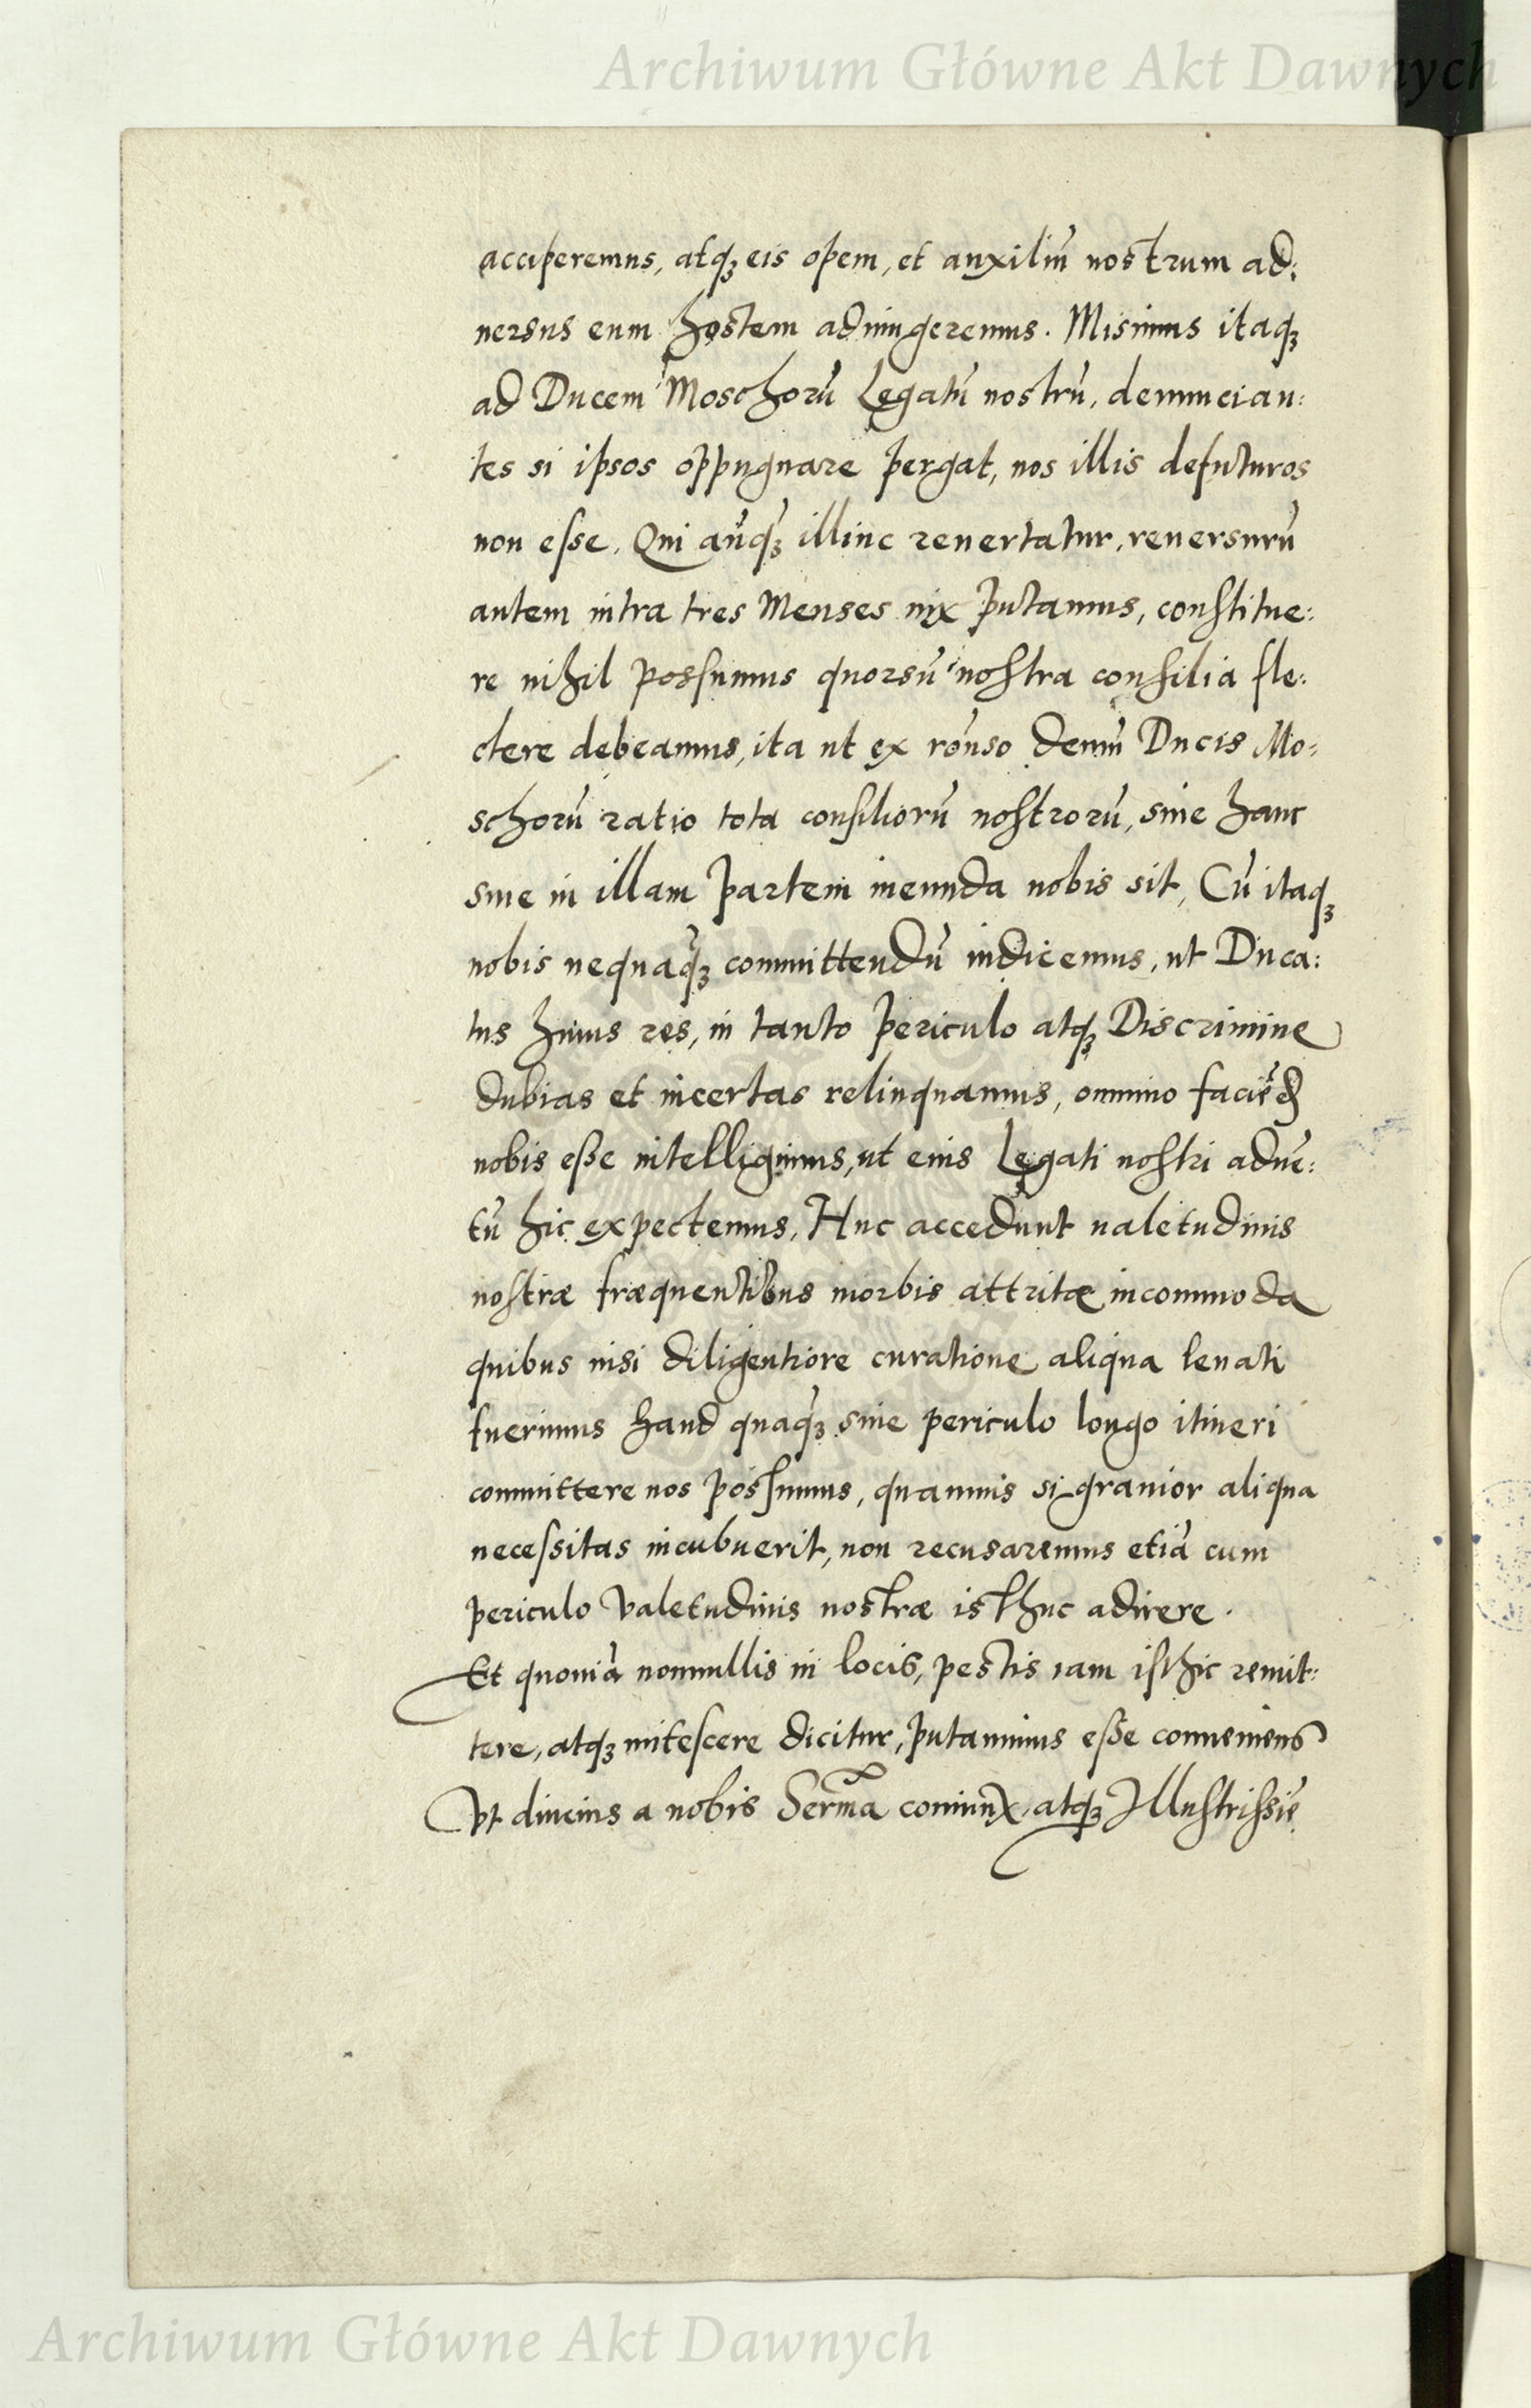 Archiwum Główne Akt Dawnych
acciperemus, atqꝫ eis opem, et auxiliũ nostrum ad:
uersus eum hostem adiungeremus. Misimus itaqꝫ
ad Ducem Moschorũ Legatũ nostrũ, denuncian:
tes si ipsos oppugnare pergat, nos illis defuturos
non esse. Qui anteqꝫ̃ illinc reuertatur, reuersurũ
autem intra tres Menses uix putamus, constitue:
re nihil possumus quorsũ nostra consilia fle:
ctere debeamus, ita ut ex rõnso demũ Ducis Mo:
schorũ ratio tota consiliorũ nostrorũ, siue hanc
siue in illam partem ineunda nobis sit. Cũ itaqꝫ
nobis nequaqꝫ̃ committendũ iudicemus, ut Duca:
tus huius res, in tanto periculo atqꝫ Discrimine
dubias et incertas relinquamus, omnino faciẽd
nobis esse intelligimus, ut eius Legati nostri aduẽ:
tũ hic expectemus. Huc accedunt ualetudinis
nostræ fræquentibus morbis attritæ incommoda
quibus nisi diligentiore curatione aliqua leuati
fuerimus haud quaqꝫ̃ sine periculo longo itineri
committere nos possumus, quamuis si grauior aliqua
necessitas incubuerit, non recusaremus etiã cum
periculo Valetudinis nostræ isthuc adirere.
Et quoniã nonnullis in locis, pestis iam isthic remit:
tere, atqꝫ mitescere dicitur, putauimus esse conueniens
Vt diucius a nobis Serm̃a coniunx, atqꝫ Illustrissiẽ
Archiwum Główne Akt Dawnych